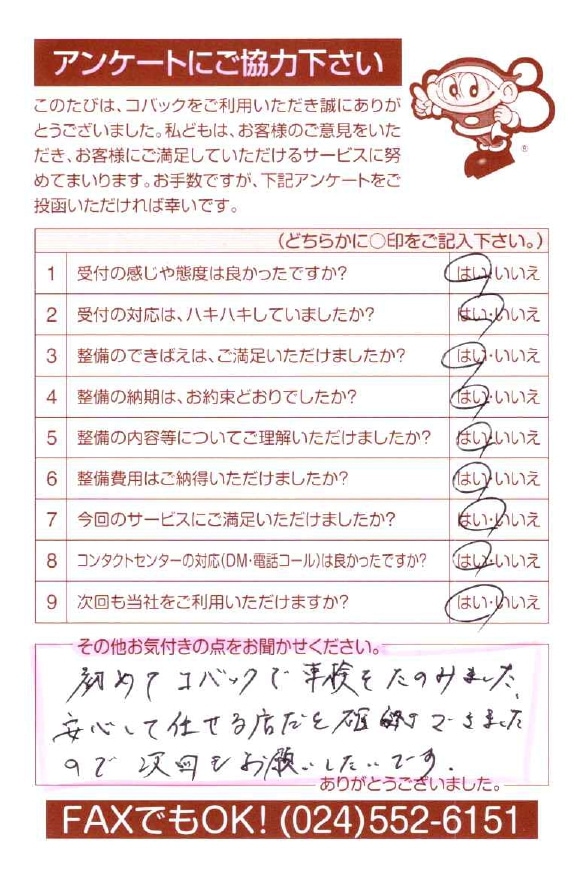 アンケートにご協力下さい
このたびは、コバックをご利用いただき誠にありが
とうございました。私どもは、お客様のご意見をいた
だき、お客様にご満足していただけるサービスに努
めてまいります。お手数ですが、下記アンケートをご
投函いただければ幸いです。
®
(どちらかに○印をご記入下さい。)
1 受付の感じや態度は良かったですか? はい・いいえ
2 受付の対応は、ハキハキしていましたか? はい・いいえ
3 整備のできばえは、ご満足いただけましたか? はい・いいえ
4 整備の納期は、お約束どおりでしたか? はい・いいえ
5 整備の内容等についてご理解いただけましたか? はい・いいえ
6 整備費用はご納得いただけましたか? はい・いいえ
7 今回のサービスにご満足いただけましたか? はい・いいえ
8 コンタクトセンターの対応(DM・電話コール)は良かったですか? はい・いいえ
9 次回も当社をご利用いただけますか? はい・いいえ
その他お気付きの点をお聞かせください。
初めてコバックで車検をたのみました、
安心して任せる店だと確認できました
ので次回もお願いしたいです.
ありがとうございました。
FAXでもOK! (024)552-6151